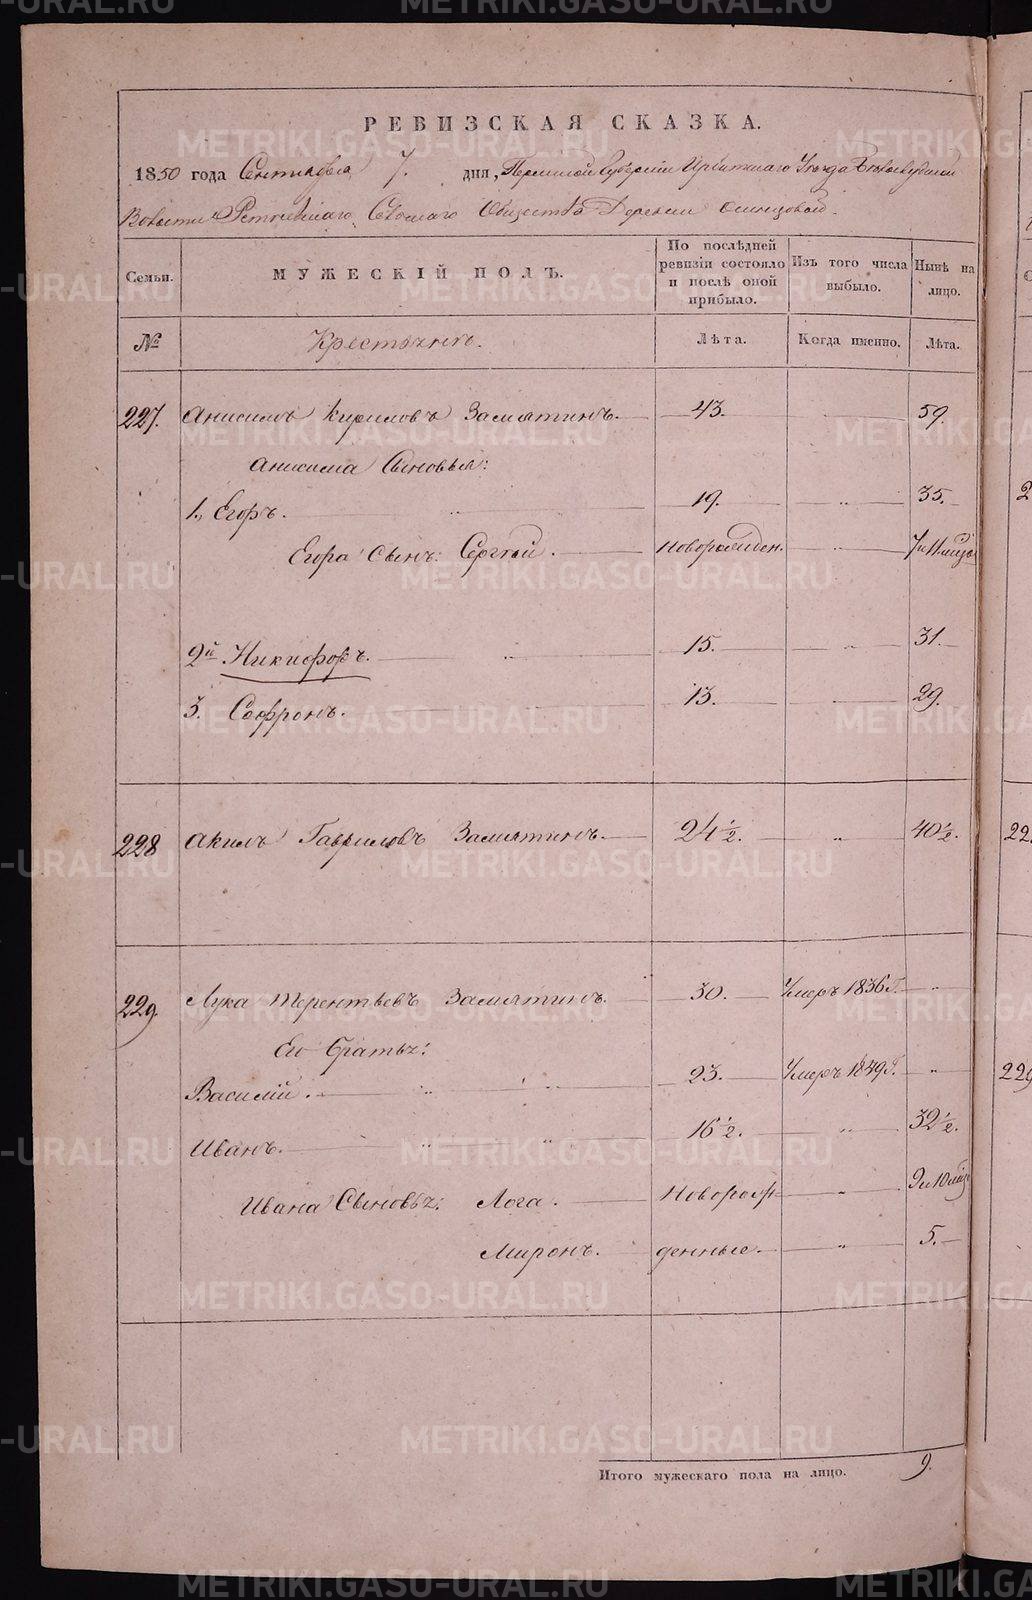 РЕВИЗСКАЯ СКАЗКА.
1850 года Сентября 7. дня, Пермской Губернии Ирбитскаго Уезда
Волости Сельскаго Общества Деревни Осинцовой.
Семьи. МУЖЕСКІЙ ПОЛЪ. По послѣдней ревизіи состояло и послѣ оной прибыло. Изъ того числа выбыло. Нынѣ на лицо.
№ Крестьянъ. Лѣта. Когда именно. Лѣта.
227. Анисимъ Кириловъ Замятинъ. 43. 59.
Анисима Сыновья:
1., Егоръ. " 19. " 35.
Егора Сынъ: Сергѣй. Новорожден. " 7 и 11 мѣся
2й Никифоръ. " 15. " 31.
3. Софронъ. 13. 29.
228 Акимъ Гавриловъ Замятинъ. 24½. " 40½.
229. Лука Терентьевъ Замятинъ. 30. Умеръ 1836 г. "
Его Братья:
Василій. " " 23. Умеръ 1849 г. "
Иванъ. " " 16½. " 32½.
Ивана Сыновья: Лога. Новорож- "
Миронъ. денные. " 5.
Итого мужескаго пола на лицо. 9.
METRIKI.GASO-URAL.RU